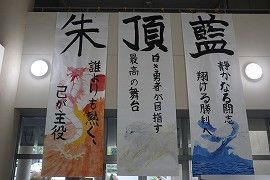 藍
静かなる闘志
翔ける勝利へ
頂
白き勇者が目指す
最高の舞台
朱
誰よりも熱く、
己が主役